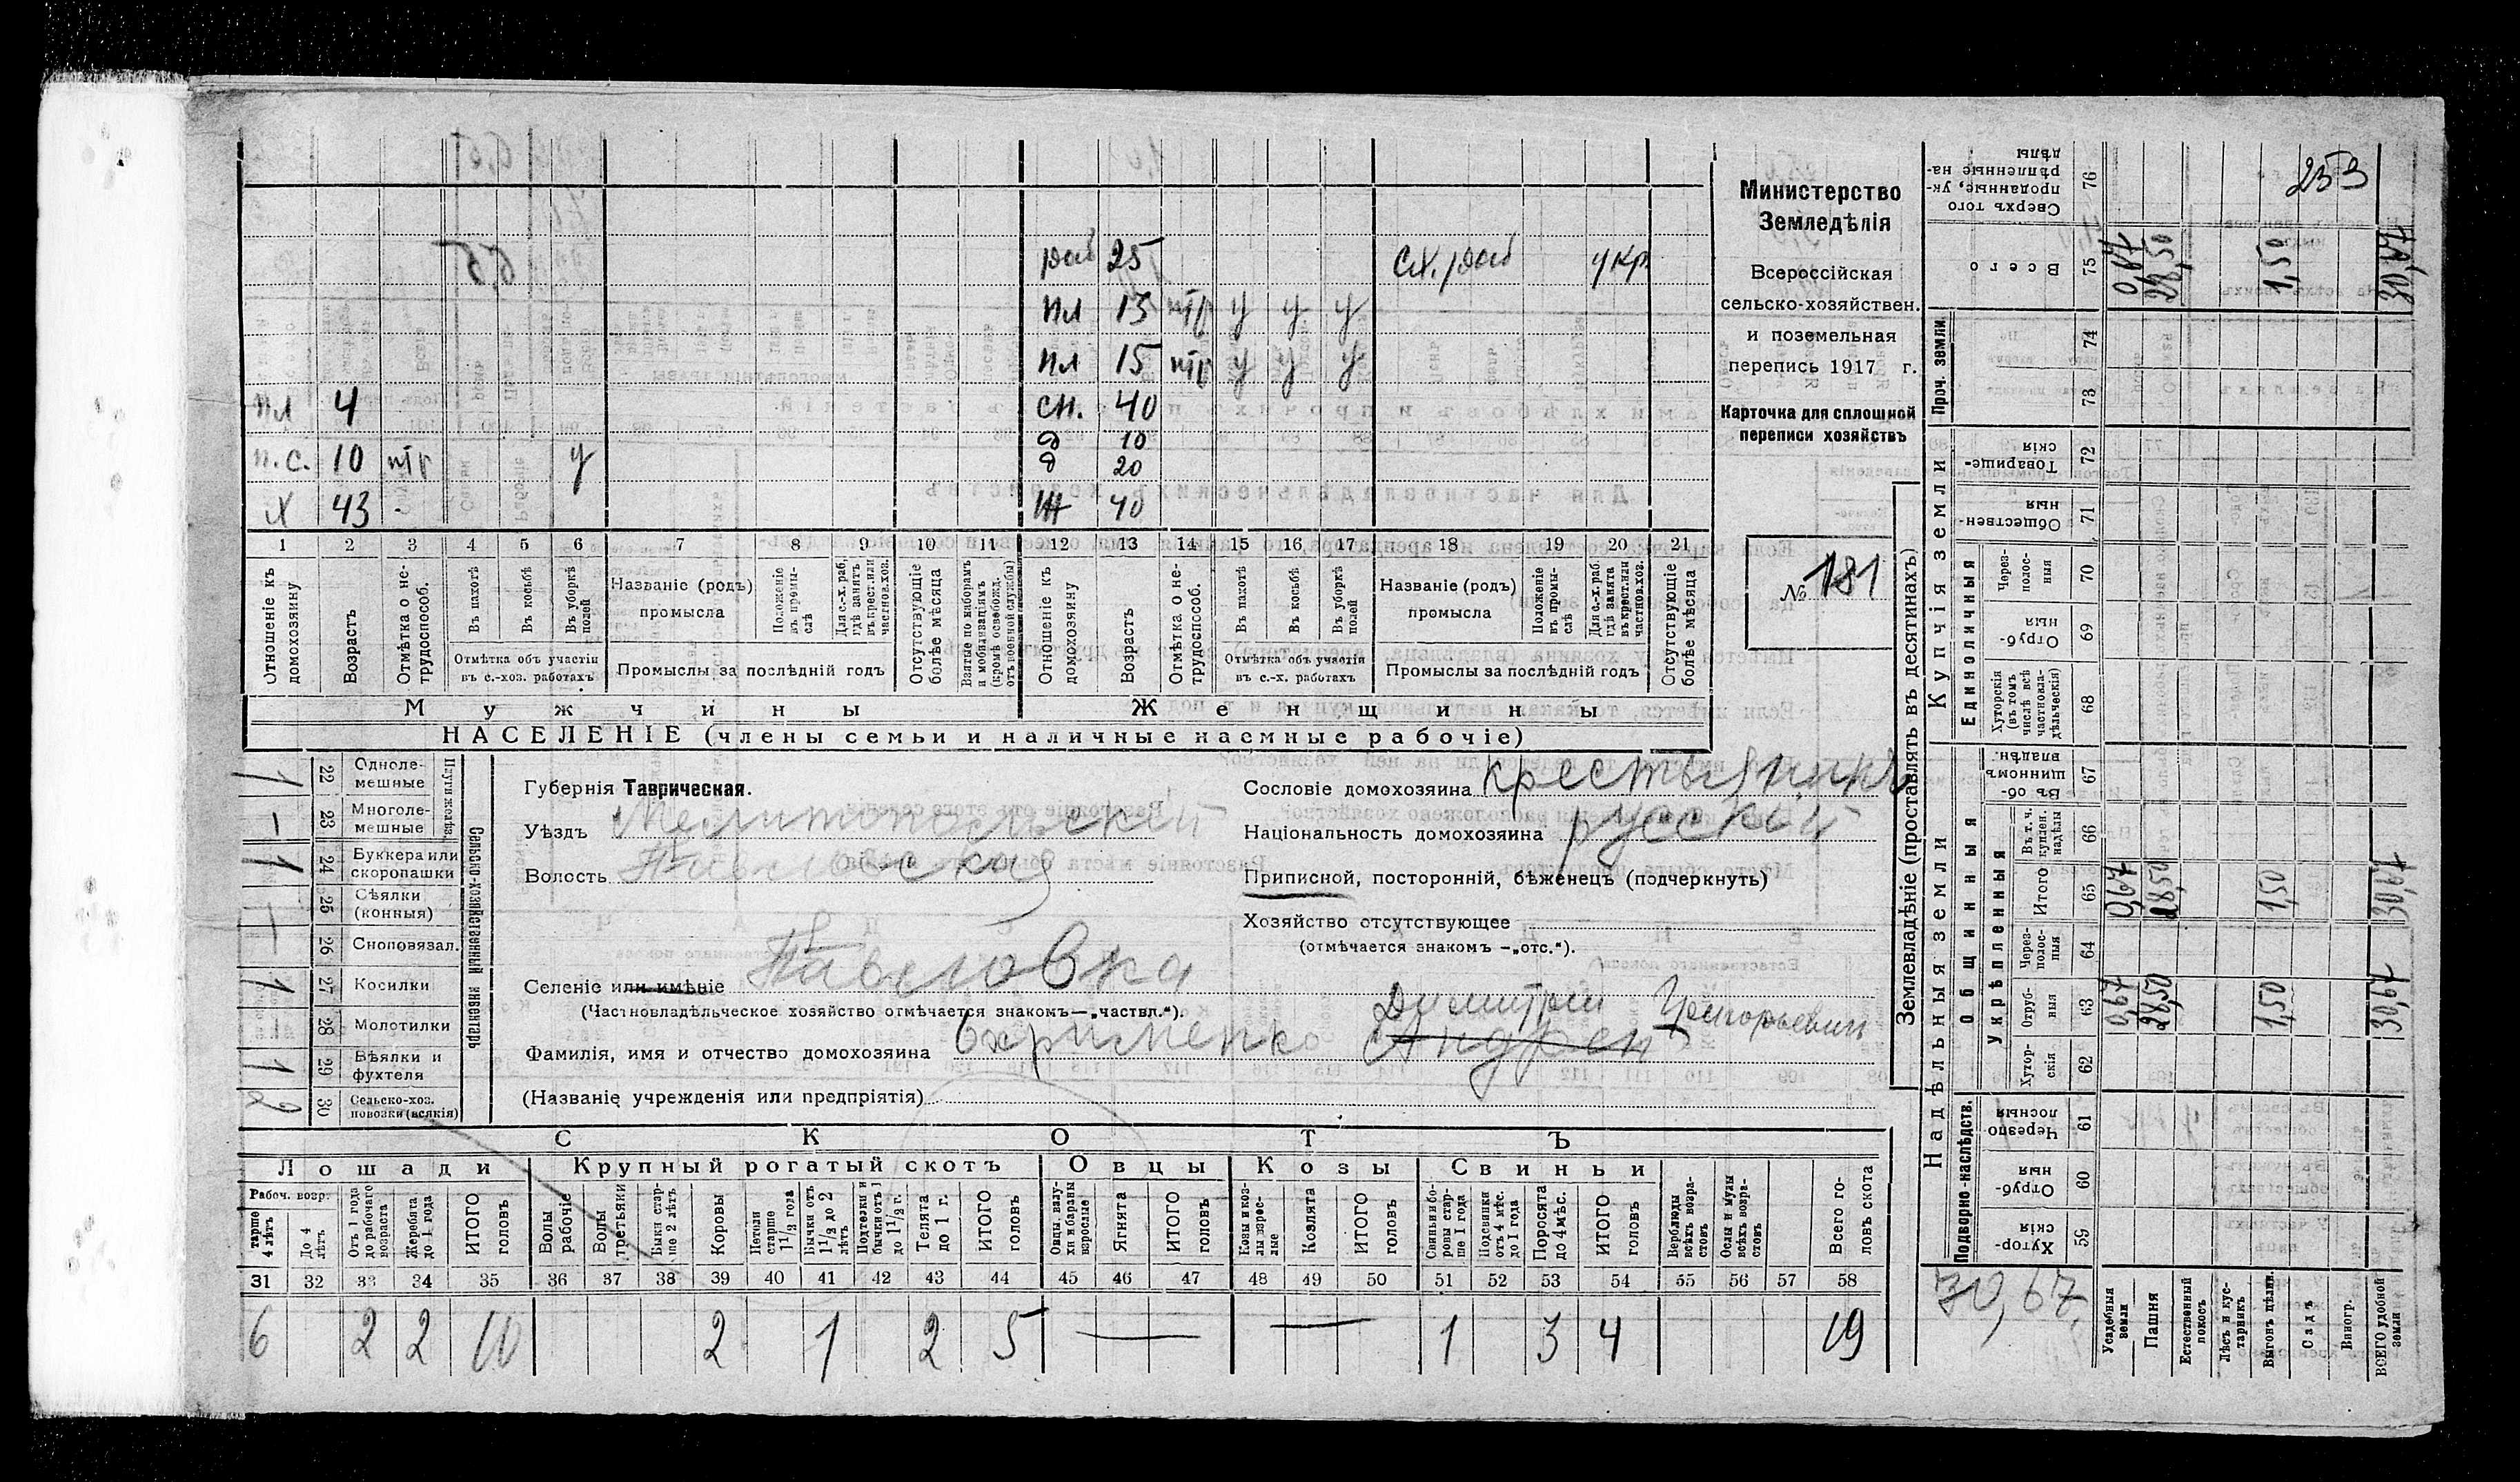 Министерство
Земледѣлія
Всероссійская
сельско-хозяйствен.
и поземельная
перепись 1917 г.
Карточка для сплошной
переписи хозяйствъ
№ 181
253
раб 25 сх. раб укр
пл 13 нтр у у у
пл 15 нтр у у у
пл 4 сн. 40
д 10
п.с. 10 нтр у д 20
х 43 - ж 40
1 2 3 4 5 6 7 8 9 10 11 12 13 14 15 16 17 18 19 20 21
Отношеніе къ домохозяину
Возрастъ
Отмѣтка о не-трудоспособ.
Въ пахотѣ
Въ косьбѣ
Въ уборкѣ полей
Отмѣтка объ участіи въ с.-хоз. работахъ
Названіе (родъ) промысла
Положеніе въ промы-слѣ
Для с.-х. раб. гдѣ занятъ въ крест. или частнов. хоз.
Промыслы за послѣдній годъ
Отсутствующіе болѣе мѣсяца
Взятые по наборамъ и мобилизаціямъ (кромѣ освобожд. отъ военной службы)
Отношеніе къ домохозяину
Возрастъ
Отмѣтка о не-трудоспособ.
Въ пахотѣ
Въ косьбѣ
Въ уборкѣ полей
Отмѣтка объ участіи въ с.-х. работахъ
Названіе (родъ) промысла
Положеніе въ промы-слѣ
Для с.-х. раб. гдѣ занята въ крест. или частнов. хоз.
Промыслы за послѣдній годъ
Отсутствующіе болѣе мѣсяца
Мужчины Женщины
НАСЕЛЕНІЕ (члены семьи и наличные наемные рабочіе)
Сельско-хозяйственный инвентарь
Плуги желѣз.
22 Одноле-мешные 1
23 Многоле-мешные -
24 Буккера или скоропашки 1
25 Сѣялки (конныя)
26 Сноповязал.
27 Косилки 1
28 Молотилки
29 Вѣялки и фухтеля 1
30 Сельско-хоз. повозки (всякія) 2
Губернія Таврическая.
Уѣздъ Мелитопольскій
Волость Павловская
Селеніе или имѣніе Павловка
(Частновладѣльческое хозяйство отмѣчается знакомъ—„частвл.“).
Сословіе домохозяина крестьянинъ
Національность домохозяина русскій
Приписной, посторонній, бѣженецъ (подчеркнуть)
Хозяйство отсутствующее
(отмѣчается знакомъ —„отс.“).
Димитрій Григорьевич
Фамилія, имя и отчество домохозяина Охрименко Андрей
(Названіе учрежденія или предпріятія)
СКОТЪ
Лошади Крупный рогатый скотъ Овцы Козы Свиньи
Рабоч. возр.
тарше 4 лѣтъ
До 4 лѣтъ
Отъ 1 года до рабочаго возраста
Жеребята до 1 года
ИТОГО головъ
Волы рабочіе
Волы третьяки
Быки стар-ше 2 лѣтъ
Коровы
Нетели старше 1 1/2 года
Бычки отъ 1 1/2 до 2 лѣтъ
Подтелки и бычки отъ 1 до 1 1/2 г.
Телята до 1 г.
ИТОГО головъ
Овцы, валу-хи и бараны взрослые
Ягнята
ИТОГО головъ
Козы и коз-лы взрос-лые
Козлята
ИТОГО головъ
Свиньи и бо-ровы стар-ше 1 года
Подсвинки отъ 4 мѣс. до 1 года
Поросята до 4 мѣс.
ИТОГО головъ
Верблюды всѣхъ возра-стовъ
Ослы и мулы всѣхъ возра-стовъ
Всего го-ловъ скота
31 32 33 34 35 36 37 38 39 40 41 42 43 44 45 46 47 48 49 50 51 52 53 54 55 56 57 58
6 2 2 10 2 1 2 5 — — 1 3 4 19
Землевладѣніе (проставлять въ десятинахъ)
Надѣльныя земли Купчія земли Проч. земли
Подворно-наслѣдств.
Общинныя
Укрѣпленныя
Единоличныя
Хутор-скія 59
Отруб-ныя 60
Черезпо лосныя 61
Хутор-скія 62
Отруб-ныя 63
Через-полос-ныя 64
Итого 65
Въ т. ч. куплен. надѣлы 66
Въ об-щинномъ владѣн. 67
Хуторскія (въ томъ числѣ всѣ частновла-дѣльческія) 68
Отруб-ныя 69
Через-полос-ныя 70
Обществен-ныя 71
Товарище-скія 72
73
74
Всего 75
Сверхъ того проданные, ук-рѣпленные на-дѣлы 76
30,67.
Усадебныя земли 0,67 0,67 0,67
Пашня 28,50 28,50 28,50
Естественный покосъ
Лѣсъ и кус-тарникъ
Выгонъ цѣлин. 1,50 1,50 1,50
Садъ
Виногр.
ВСЕГО удобной земли 30,67 30,67 30,67